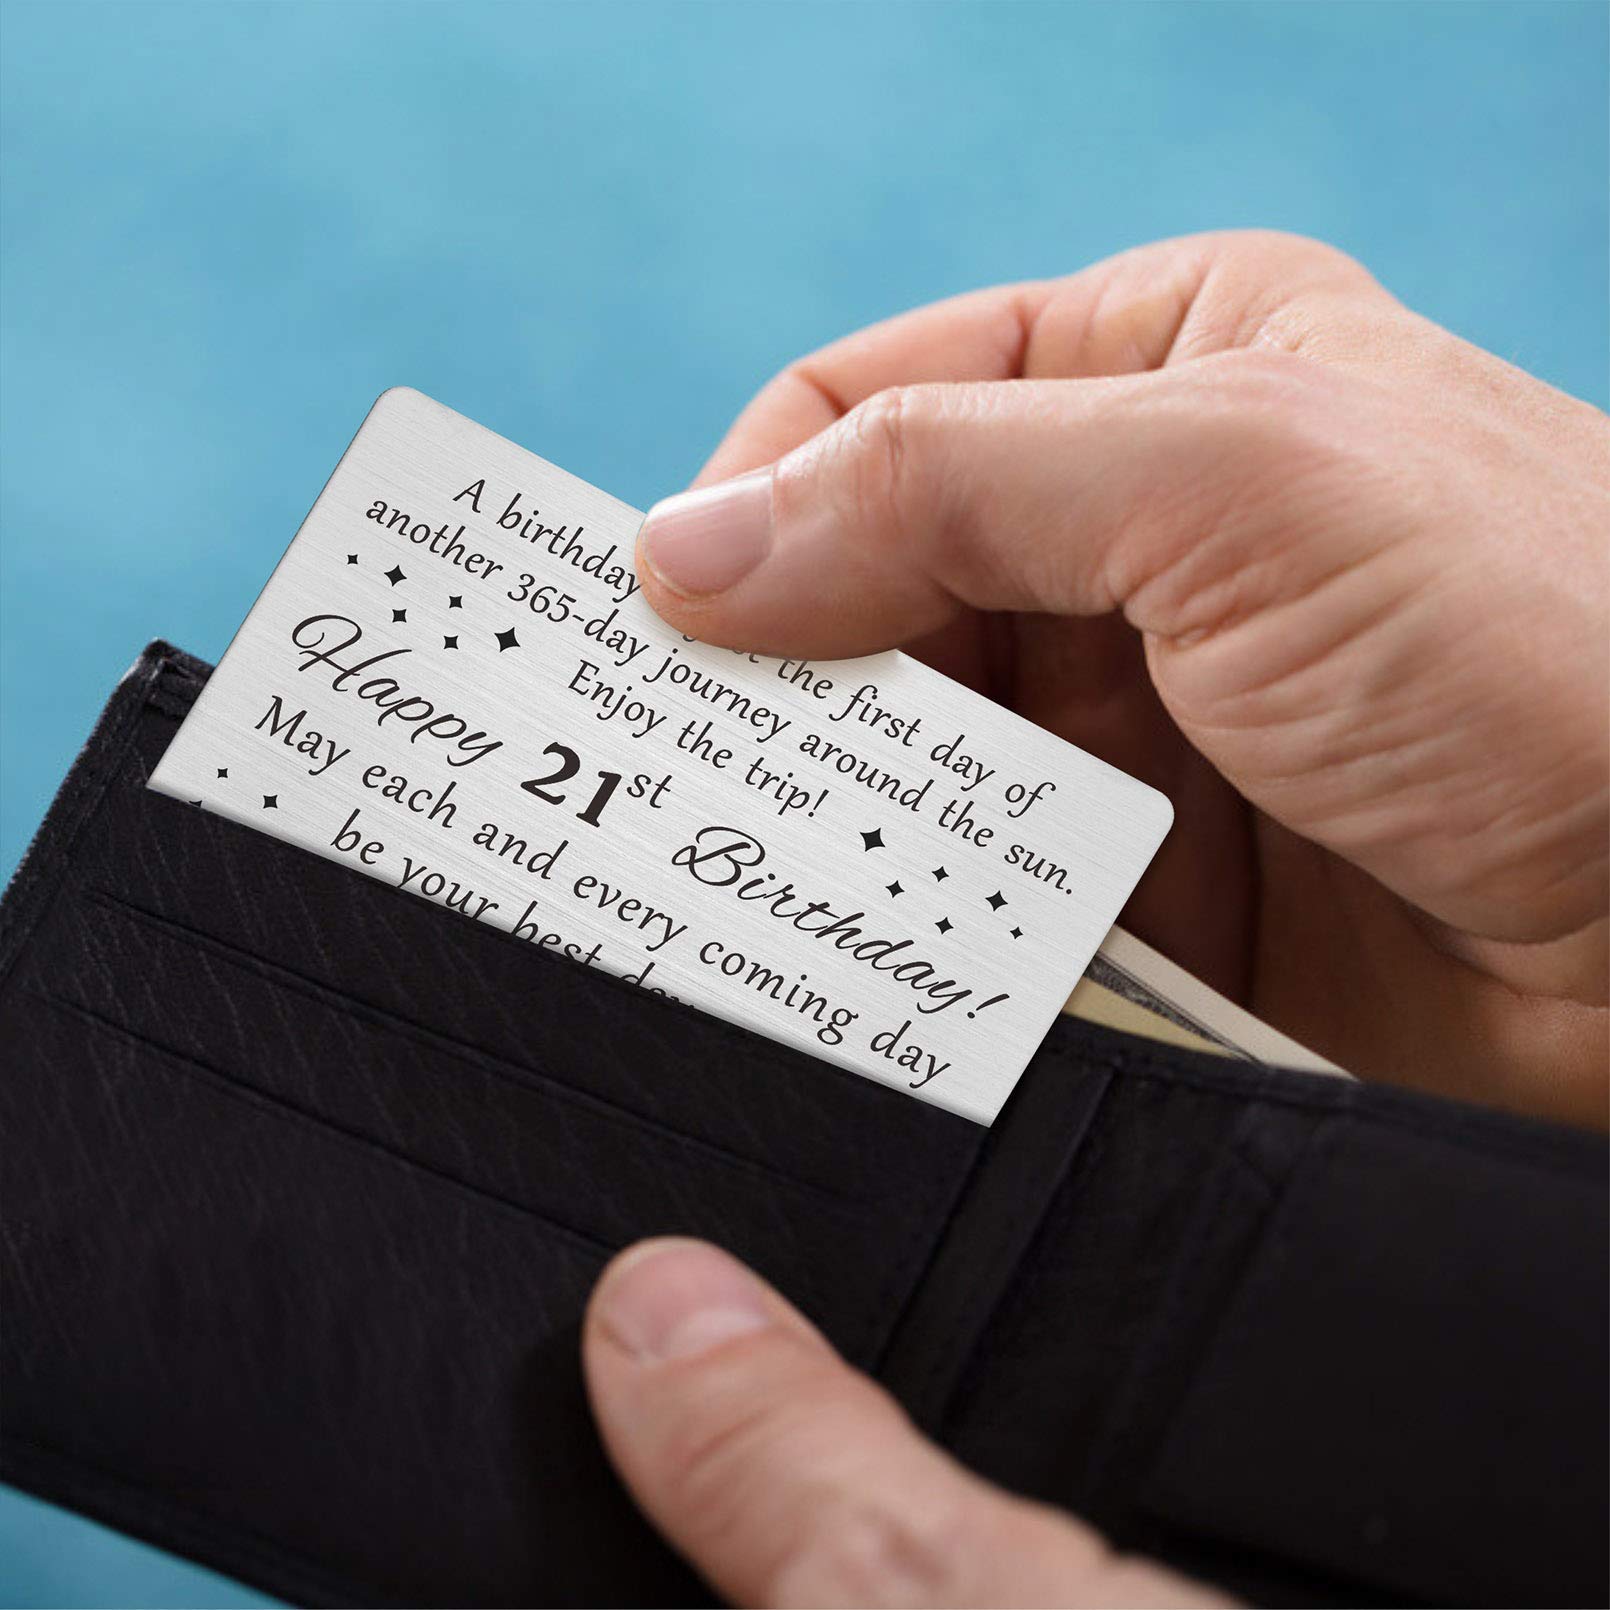 A birthday the first day of
another 365-day journey around the sun.
Enjoy the trip!
Happy 21st Birthday!
May each and every coming day
be your best day